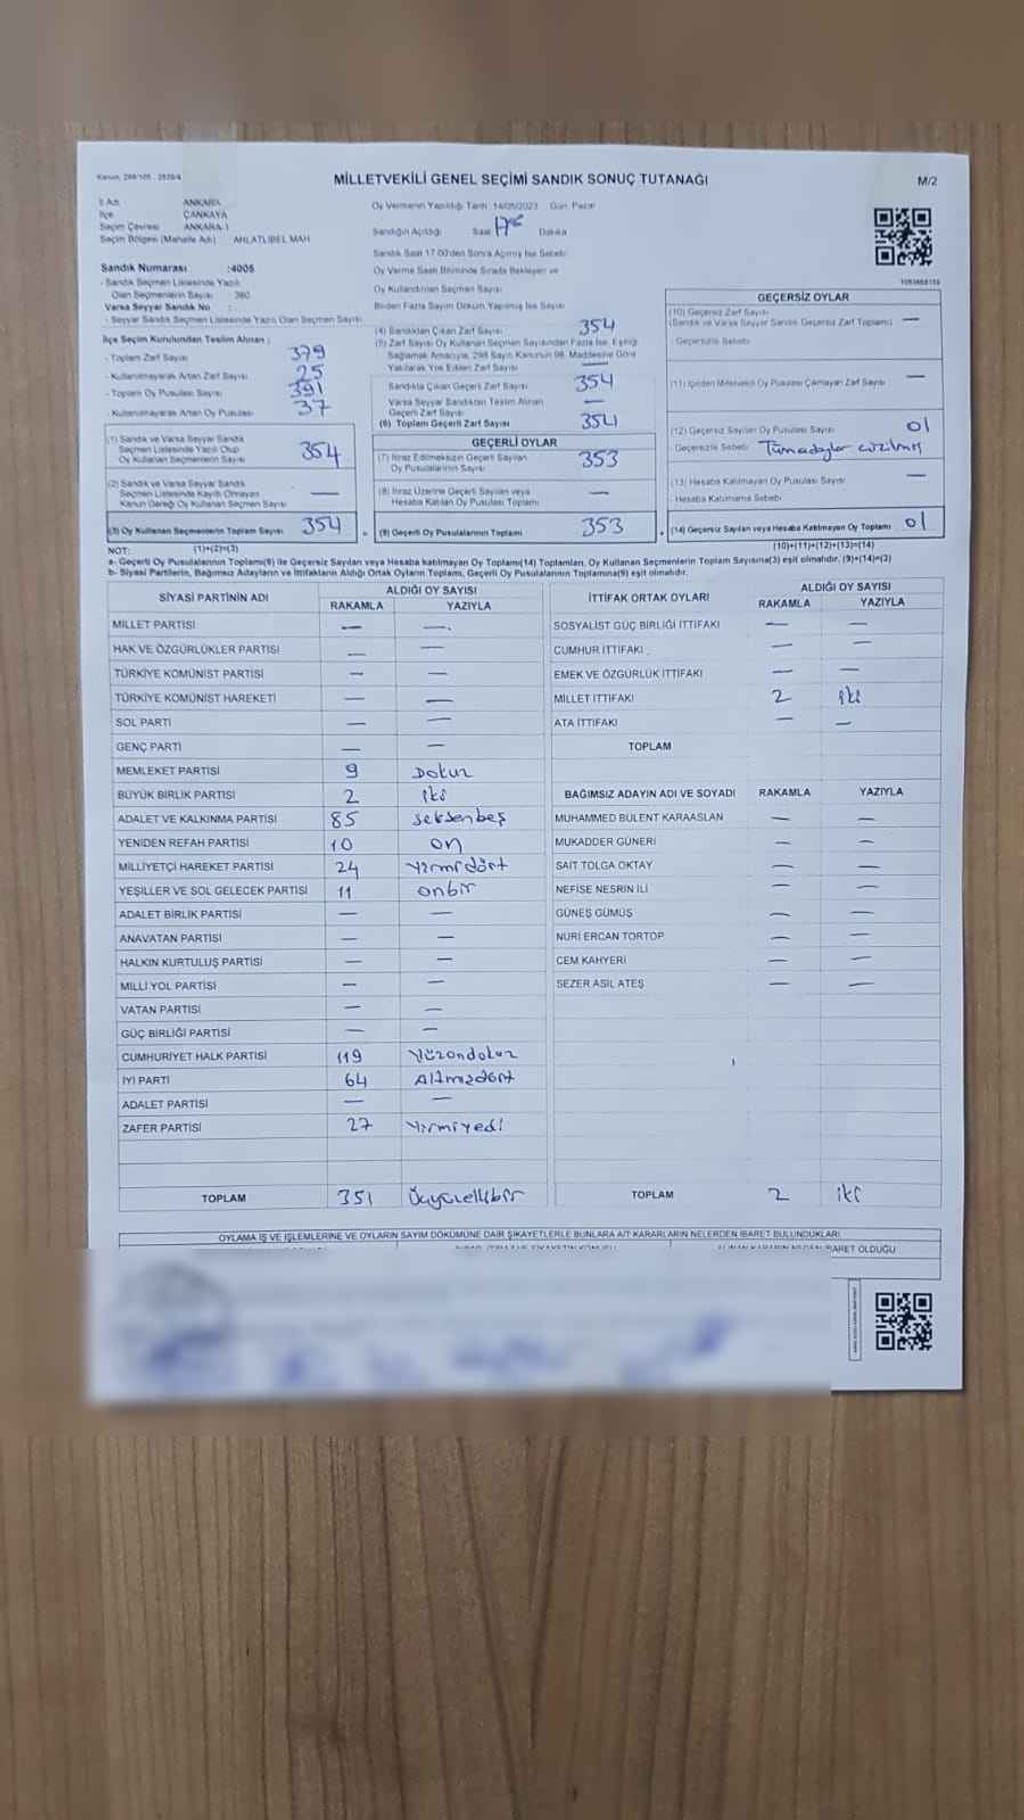 MİLLETVEKİLİ GENEL SEÇİMİ SANDIK SONUÇ TUTANAĞI
M/2
İl Adı : ANKARA
İlçe ÇANKAYA
Seçim Çevresi ANKARA-1
Seçim Bölgesi (Mahalle Adı) AHLATLIBEL MAH
Oy Vermenin Yapıldığı Tarih :14/05/2023 Gün: Pazar
Sandığın Açıldığı Saat Dakika
Sandık Saat 17.00'den Sonra Açılmış İse Sebebi
Oy Verme Saati Bitiminde Sırada Bekleyen ve
Oy Kullandırılan Seçmen Sayısı
Birden Fazla Sayım Döküm Yapılmış İse Sayısı
Sandık Numarası :4005
- Sandık Seçmen Listesinde Yazılı
Olan Seçmenlerin Sayısı : 380
Varsa Seyyar Sandık No :
- Seyyar Sandık Seçmen Listesinde Yazılı Olan Seçmen Sayısı
İlçe Seçim Kurulundan Teslim Alınan :
- Toplam Zarf Sayısı 379
- Kullanılmayarak Artan Zarf Sayısı 25
- Toplam Oy Pusulası Sayısı 391
- Kullanılmayarak Artan Oy Pusulası 37
(1) Sandık ve Varsa Seyyar Sandık
Seçmen Listesinde Yazılı Olup
Oy Kullanan Seçmenlerin Sayısı 354
(2) Sandık ve Varsa Seyyar Sandık
Seçmen Listesinde Kayıtlı Olmayan
Kanun Gereği Oy Kullanan Seçmen Sayısı —
(3) Oy Kullanan Seçmenlerin Toplam Sayısı 354
(4) Sandıktan Çıkan Zarf Sayısı 354
(5) Zarf Sayısı Oy Kullanan Seçmen Sayısından Fazla İse, Eşitliği
Sağlamak Amacıyla, 298 Sayılı Kanunun 98. Maddesine Göre
Yakılarak Yok Edilen Zarf Sayısı —
Sandıkta Çıkan Geçerli Zarf Sayısı 354
Varsa Seyyar Sandıktan Teslim Alınan
Geçerli Zarf Sayısı —
(6) Toplam Geçerli Zarf Sayısı 354
GEÇERLİ OYLAR
(7) İtiraz Edilmeksizin Geçerli Sayılan
Oy Pusulalarının Sayısı 353
(8) İtiraz Üzerine Geçerli Sayılan veya
Hesaba Katılan Oy Pusulası Toplamı —
(9) Geçerli Oy Pusulalarının Toplamı 353
GEÇERSİZ OYLAR
(10) Geçersiz Zarf Sayısı
(Sandık ve Varsa Seyyar Sandık Geçersiz Zarf Toplamı) —
Geçersizlik Sebebi
(11) İçinden Milletvekili Oy Pusulası Çıkmayan Zarf Sayısı —
(12) Geçersiz Sayılan Oy Pusulası Sayısı 01
Geçersizlik Sebebi Tüm adaylar çizilmiş
(13) Hesaba Katılmayan Oy Pusulası Sayısı —
Hesaba Katılmama Sebebi
(14) Geçersiz Sayılan veya Hesaba Katılmayan Oy Toplamı 01
NOT: (1)+(2)=(3) (10)+(11)+(12)+(13)=(14)
a- Geçerli Oy Pusulalarının Toplamı(9) ile Geçersiz Sayılan veya Hesaba katılmayan Oy Toplamı(14) Toplamları, Oy Kullanan Seçmenlerin Toplam Sayısına(3) eşit olmalıdır. (9)+(14)=(3)
b- Siyasi Partilerin, Bağımsız Adayların ve İttifakların Aldığı Ortak Oyların Toplamı, Geçerli Oy Pusulalarının Toplamına(9) eşit olmalıdır.
SİYASİ PARTİNİN ADI ALDIĞI OY SAYISI
RAKAMLA YAZIYLA
MİLLET PARTİSİ — —
HAK VE ÖZGÜRLÜKLER PARTİSİ — —
TÜRKİYE KOMÜNİST PARTİSİ — —
TÜRKİYE KOMÜNİST HAREKETİ — —
SOL PARTİ — —
GENÇ PARTİ — —
MEMLEKET PARTİSİ 9 Dokuz
BÜYÜK BİRLİK PARTİSİ 2 iki
ADALET VE KALKINMA PARTİSİ 85 seksenbeş
YENİDEN REFAH PARTİSİ 10 on
MİLLİYETÇİ HAREKET PARTİSİ 24 Yirmidört
YEŞİLLER VE SOL GELECEK PARTİSİ 11 onbir
ADALET BİRLİK PARTİSİ — —
ANAVATAN PARTİSİ — —
HALKIN KURTULUŞ PARTİSİ — —
MİLLİ YOL PARTİSİ — —
VATAN PARTİSİ — —
GÜÇ BİRLİĞİ PARTİSİ — —
CUMHURİYET HALK PARTİSİ 119 Yüzondokuz
İYİ PARTİ 64 Altmışdört
ADALET PARTİSİ — —
ZAFER PARTİSİ 27 Yirmiyedi
TOPLAM 351 Üçyüzellibir
İTTİFAK ORTAK OYLARI ALDIĞI OY SAYISI
RAKAMLA YAZIYLA
SOSYALİST GÜÇ BİRLİĞİ İTTİFAKI — —
CUMHUR İTTİFAKI — —
EMEK VE ÖZGÜRLÜK İTTİFAKI — —
MİLLET İTTİFAKI 2 iki
ATA İTTİFAKI — —
TOPLAM
BAĞIMSIZ ADAYIN ADI VE SOYADI RAKAMLA YAZIYLA
MUHAMMED BÜLENT KARAASLAN — —
MUKADDER GÜNERİ — —
SAİT TOLGA OKTAY — —
NEFİSE NESRİN İLİ — —
GÜNEŞ GÜMÜŞ — —
NURİ ERCAN TORTOP — —
CEM KAHYERİ — —
SEZER ASIL ATEŞ — —
TOPLAM 2 iki
OYLAMA İŞ VE İŞLEMLERİNE VE OYLARIN SAYIM DÖKÜMÜNE DAİR ŞİKAYETLERLE BUNLARA AİT KARARLARIN NELERDEN İBARET BULUNDUKLARI